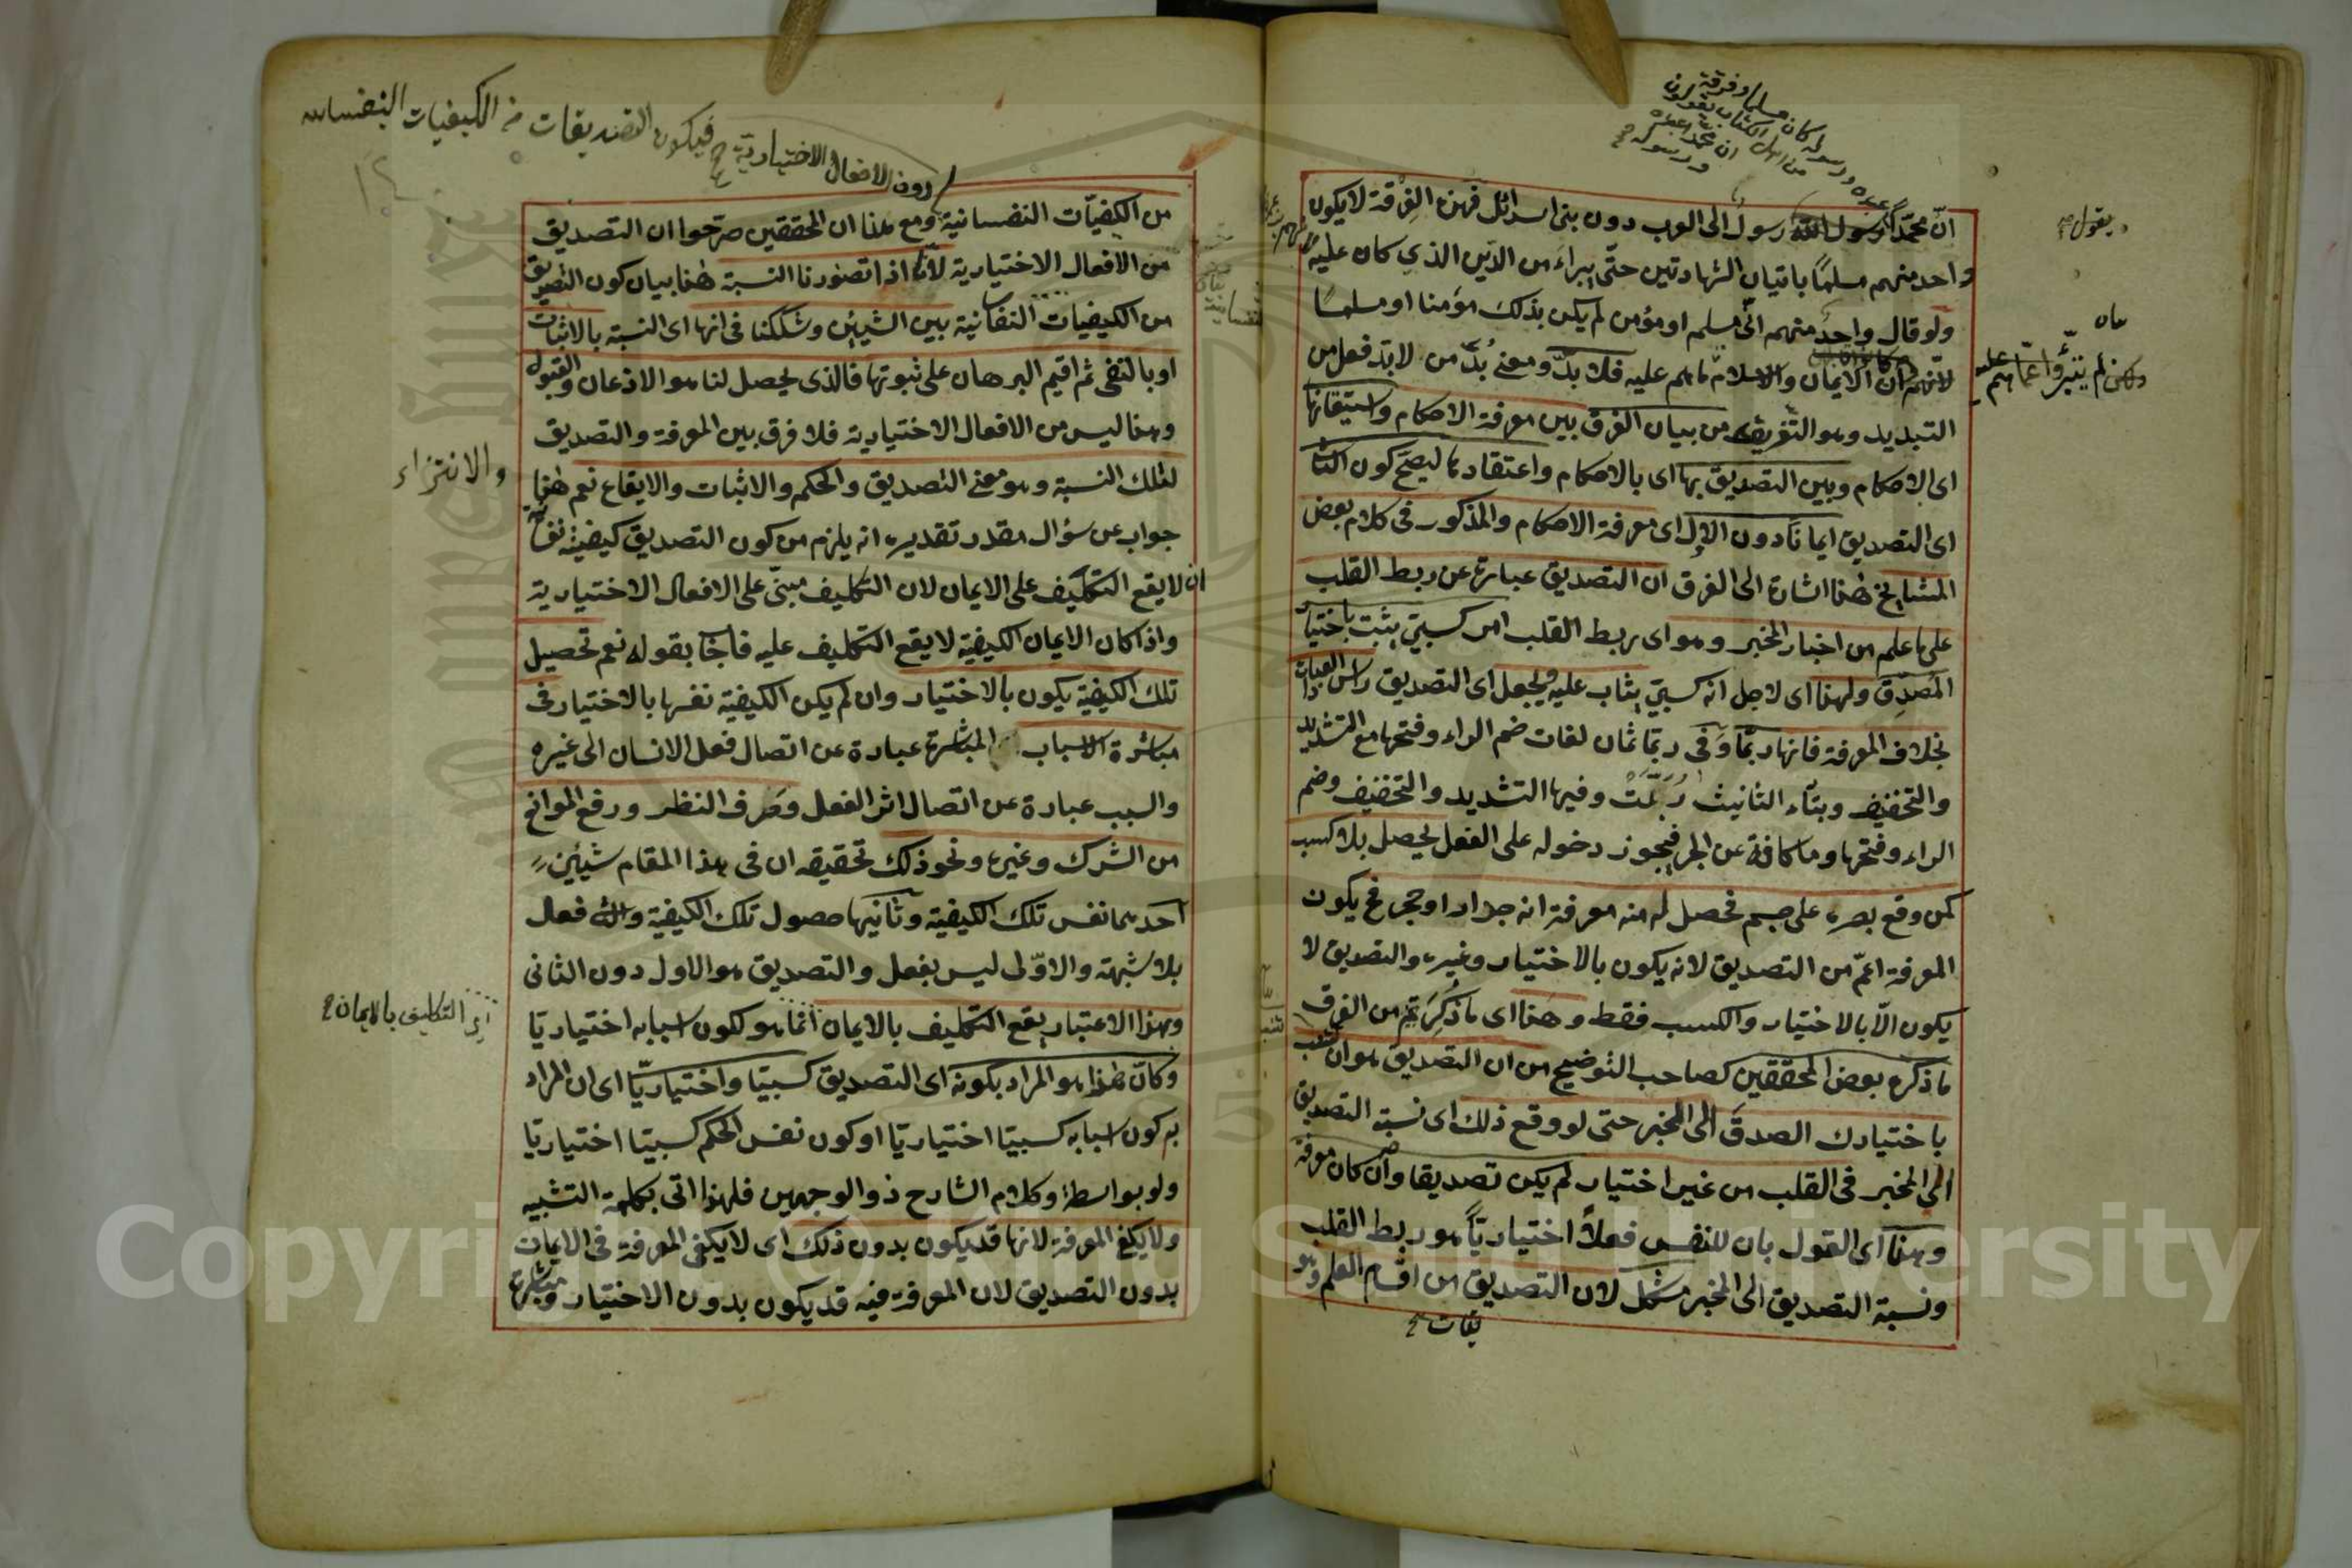 انّ محمّدًا رسول الله رسول الى العرب دون بنى اسرائل فهذه الفرقة لا يكون
واحد منهم مسلمًا باتيان الشهادتين حتّى يبراء من الدّين الذي كان عليه
ولو قال واحد منهم انّى مسلم او مؤمن لم يكن بذلك مؤمنا او مسلما
لانّهم ان الايمان والاسلام ما هم عليه فلا بدّ ومعنى بُدّ من لابدّ فعل من
التبديد وهو التّفريق من بيان الفرق بين معرفة الاحكام واستيقانها
اى الاحكام وبين التصديق بها اى بالاحكام واعتقادها ليصحّ كون الثانى
اى التصديق ايمانا دون الاول اى معرفة الاحكام والمذكور فى كلام بعض
المشايخ هٰهنا اشارة الى الفرق ان التصديق عبارة عن ربط القلب
على ما علم من اخبار المخبر وهو اى ربط القلب امر كسبىّ يثبت باختيار
المُصدِّق ولهذا اى لاجل انه كسبىّ يثاب عليه ويجعل اى التصديق رأس العبادات
بخلاف المعرفة فانها ربّما وفى ربّما ثمان لغات ضم الراء وفتحها مع التشديد
والتخفيف وبتاء التانيث رُبَّمَتَ وفيها التشديد والتخفيف وضم
الراء وفتحها وما كافة عن الجر فيجوز دخوله على الفعل يحصل بلا كسب
كمن وقع بصره على جسم فحصل له منه معرفة انه جدار او حجر فح يكون
المعرفة اعمّ من التصديق لانه يكون بالاختيار وغيره والتصديق لا
يكون الّا بالاختيار والكسب فقط وهٰذا اى ما ذُكِرَ ثم من الفرق
ما ذكره بعض المحققين كصاحب التوضيح من ان التصديق هو ان تنسب
باختيارك الصدق الى المخبر حتى لو وقع ذلك اى نسبة التصديق
الى المخبر فى القلب من غير اختيار لم يكن تصديقا وان كان معرفة
وهذا اى القول بان للنفس فعلًا اختياريًّا هو ربط القلب
ونسبة التصديق الى المخبر مشكل لان التصديق من اقسام العلم وهو
يقول
ولكن لم يتبرّؤا عمّا هم عليه
دون الافعال الاختيارية فيكون التصديقات من الكيفيات النفسانية
من الكيفيّات النفسانية ومع هذا ان المحققين صرّحوا ان التصديق
من الافعال الاختيارية لانّا اذا تصورنا النسبة هٰهنا بيان كون التصديق
من الكيفيات النفسانية بين الشيئين وشككنا فى انها اى النسبة بالاثبات
او بالنفى ثم اقيم البرهان على ثبوتها فالذى يحصل لنا هو الاذعان والقبول
وهذا ليس من الافعال الاختيارية فلا فرق بين المعرفة والتصديق
لتلك النسبة وهو معنى التصديق والحكم والاثبات والايقاع نعم هٰهنا
جواب عن سؤال مقدر تقديره انه يلزم من كون التصديق كيفية نفسانية
ان لا يقع التكليف على الايمان لان التكليف مبنىّ على الافعال الاختيارية
واذا كان الايمان الكيفية لا يقع التكليف عليه فاجاب بقوله نعم تحصيل
تلك الكيفية يكون بالاختيار وان لم يكن الكيفية نفسها بالاختيار فى
مباشرة الاسباب المباشرة عبارة عن اتصال فعل الانسان الى غيره
والسبب عبارة عن اتصال اثر الفعل وصَرف النظر ورفع الموانع
من الشرك وغيره ونحو ذلك تحقيقه ان فى هذا المقام شيئين
احدهما نفس تلك الكيفية وثانيها حصول تلك الكيفية والثانى فعل
بلا شبهة والاوّلى ليس بفعل والتصديق هو الاول دون الثانى
وبهذا الاعتبار يقع التكليف بالايمان انّما هو لكون اسبابه اختياريّا
وكانّ هٰذا هو المراد بكونه اى التصديق كسبيّا واختياريّا اى ان المراد
به كون اسبابه كسبيّا اختياريّا او كون نفس الحكم كسبيّا اختياريّا
ولو بواسطة وكلام الشارح ذو الوجهين فلهذا اتى بكلمة التشبيه
ولا يكفى المعرفة لانها قد يكون بدون ذلك اى لا يكفى المعرفة فى الايمان
بدون التصديق لان المعرفة فيه قد يكون بدون الاختيار ومباشرة
اى التكليف بالايمان
Copyright © King Saud University